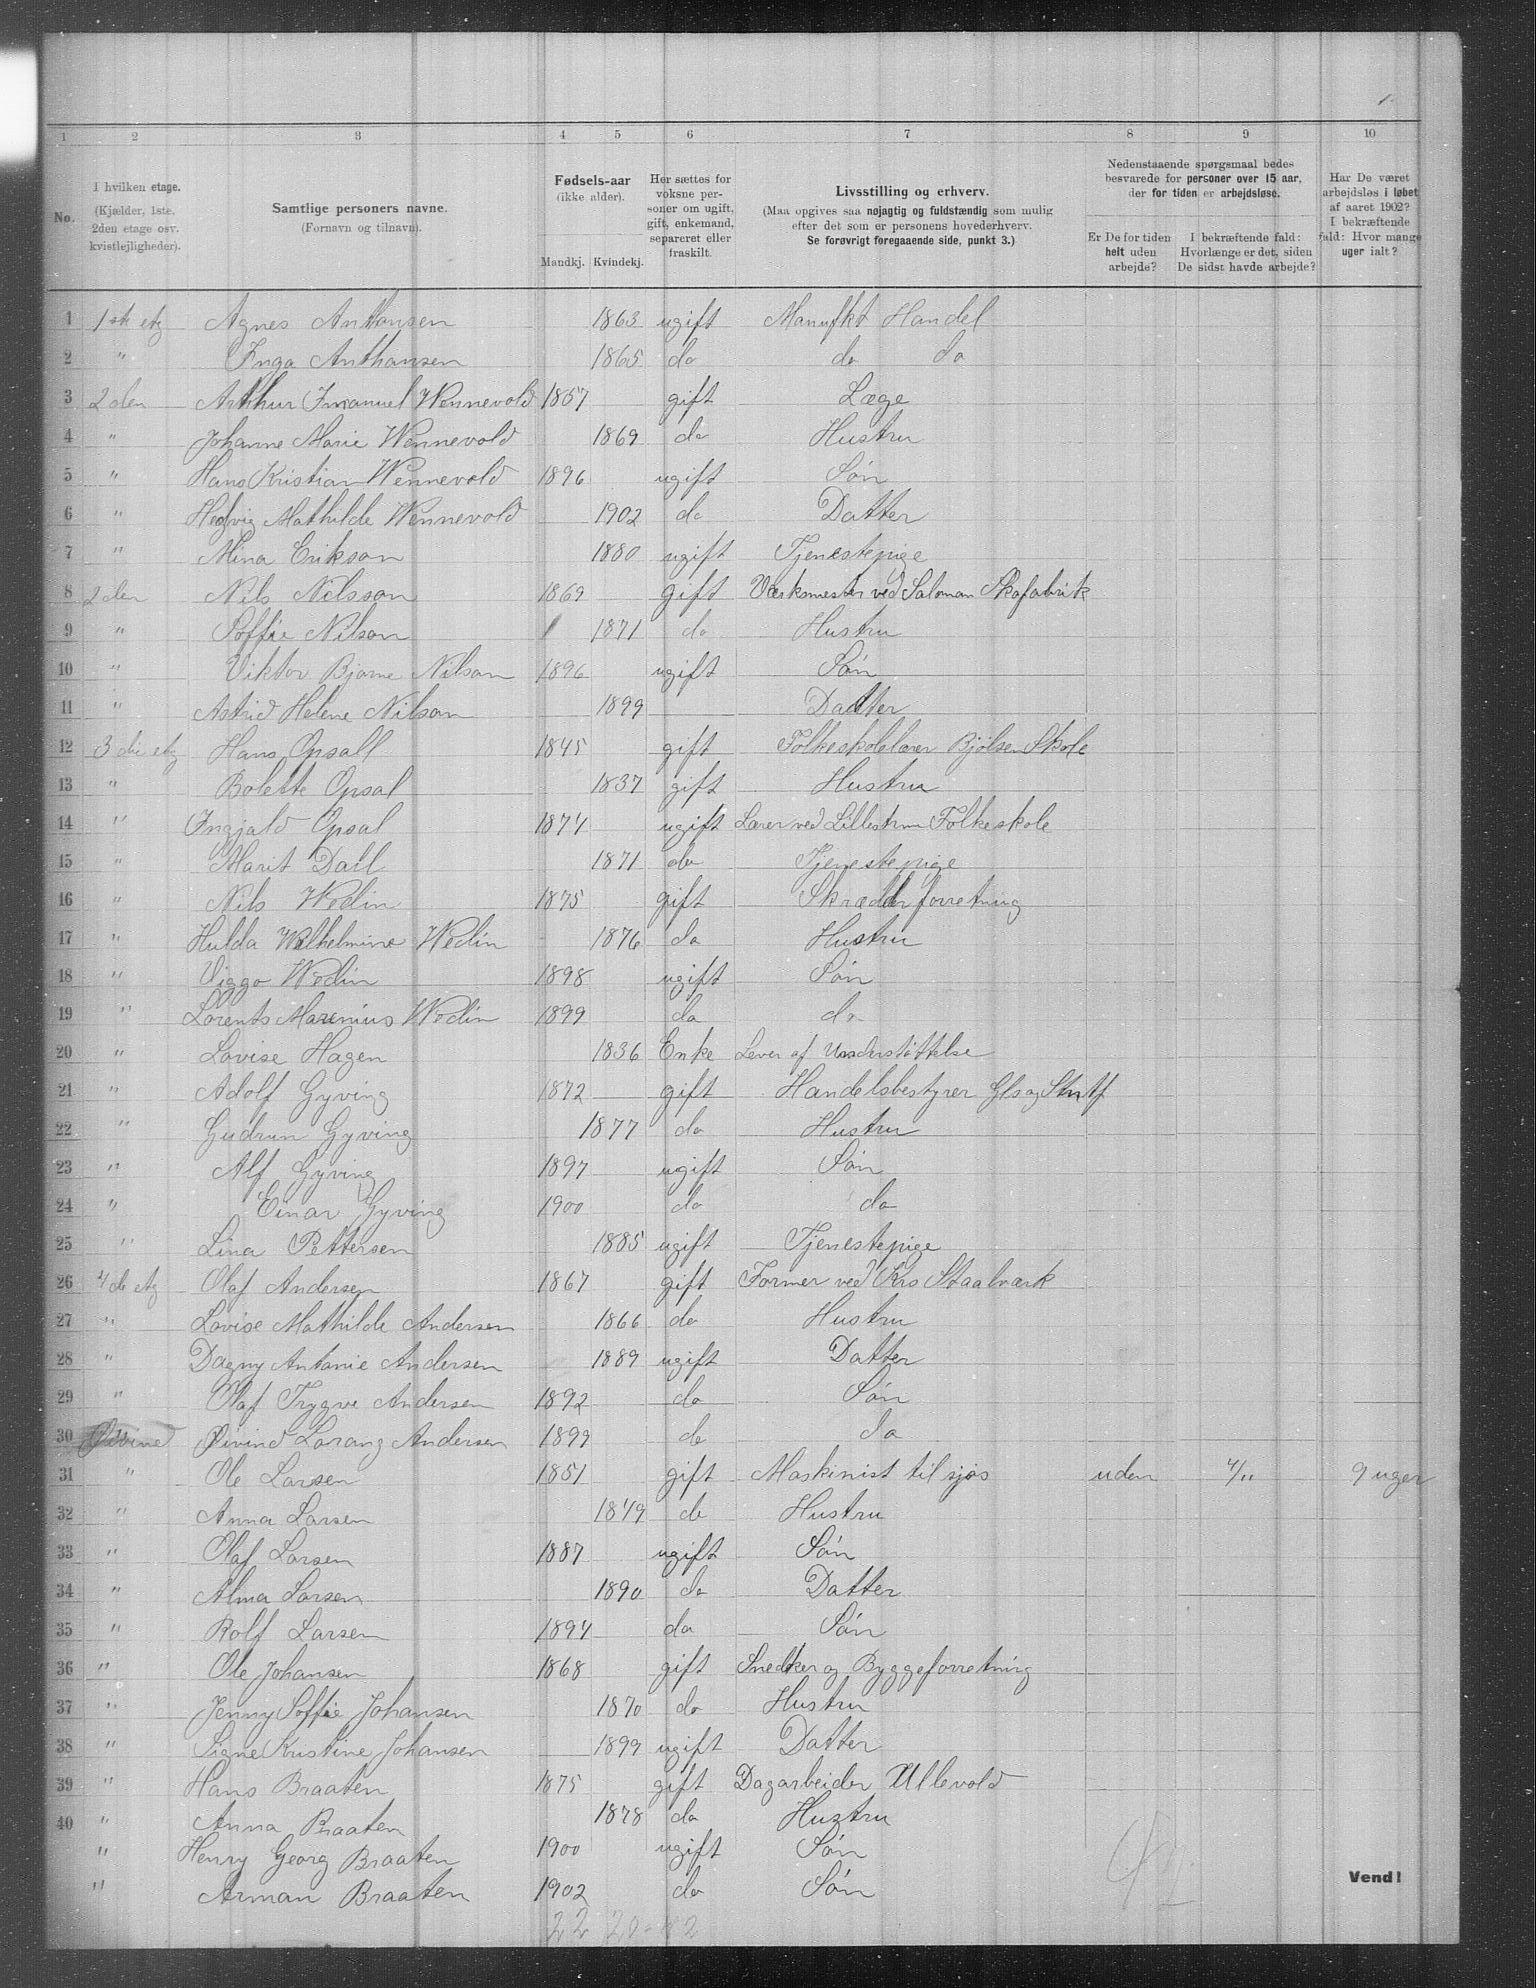 1 2 3 4 5 6 7 8 9 10
No.
I hvilken etage. (Kjælder, 1ste, 2den etage osv. kvistlejligheder).
Samtlige personers navne. (Fornavn og tilnavn).
Fødsels-aar (ikke alder).
Mandkj. Kvindekj.
Her sættes for voksne personer om ugift, gift, enkemand, separeret eller fraskilt.
Livsstilling og erhverv.
(Maa opgives saa nøjagtig og fuldstændig som mulig efter det som er personens hovederhverv.
Se forøvrigt foregaaende side, punkt 3.)
Nedenstaaende spørgsmaal bedes besvarede for personer over 15 aar, der for tiden er arbejdsløse.
Er De for tiden helt uden arbejde?
I bekræftende fald: Hvorlænge er det, siden De sidst havde arbejde?
Har De været arbejdsløs i løbet af aaret 1902? I bekræftende fald: Hvor mange uger ialt?
1 1ste etg Agnes Anthonsen 1863 ugift Manufkt Handel
2 " Inga Anthonsen 1865 do do do
3 2den Arthur Imanuel Wennevold 1867 gift Læge
4 " Johanne Marie Wennevold 1869 do Hustru
5 " Hans Kristian Wennevold 1896 ugift Søn
6 " Hedvig Mathilde Wennevold 1902 do Datter
7 " Mina Erikson 1880 ugift Tjenestepige
8 2den Nils Nilsson 1869 gift Værksmester ved Saloman Skofabrik
9 " Soffie Nilson 1871 do Hustru
10 " Viktor Bjarne Nilson 1896 ugift Søn
11 " Astrid Helene Nilson 1899 Datter
12 3die etg Hans Opsall 1845 gift Folkeskolelærer Bjølsen Skole
13 " Bolette Opsal 1837 gift Hustru
14 " Ingjald Opsal 1874 ugift Lærer ved Lillestrøm Folkeskole
15 " Marit Dall 1871 do Tjenestepige
16 " Nils Wedin 1875 gift Skrædderforretning
17 " Hulda Wilhelmine Wedin 1876 do Hustru
18 " Viggo Wedin 1898 ugift Søn
19 " Lorents Marenius Wedin 1899 do do
20 " Lovise Hagen 1836 Enke Lever af Understøttelse
21 " Adolf Gyving 1872 gift Handelsbestyrer Gls og Stntf
22 " Gudrun Gyving 1877 do Hustru
23 " Alf Gyving 1897 ugift Søn
24 " Einar Gyving 1900 do do
25 " Lina Pettersen 1885 ugift Tjenestepige
26 4de etg Olaf Andersen 1867 gift Former ved Krs Staalværk
27 " Lovise Mathilde Andersen 1866 do Hustru
28 " Dagny Antonie Andersen 1889 ugift Datter
29 " Olaf Trygve Andersen 1892 do Søn
30 " Øivind Lorang Andersen 1899 do do
31 " Ole Larsen 1851 gift Maskinist til sjøs uden 4/11 9 uger
32 " Anna Larsen 1849 do Hustru
33 " Olaf Larsen 1887 ugift Søn
34 " Alma Larsen 1890 do Datter
35 " Rolf Larsen 1894 do Søn
36 " Ole Johansen 1868 gift Snedker og Byggeforretning
37 " Jenny Soffie Johansen 1870 do Hustru
38 " Signe Kristine Johansen 1899 ugift Datter
39 " Hans Braaten 1875 gift Dagarbeider Ullevold
40 " Anna Braaten 1878 do Hustru
" Henry Georg Braaten 1900 ugift Søn
" Arman Braaten 1902 do Søn
Vend!
22 20-42